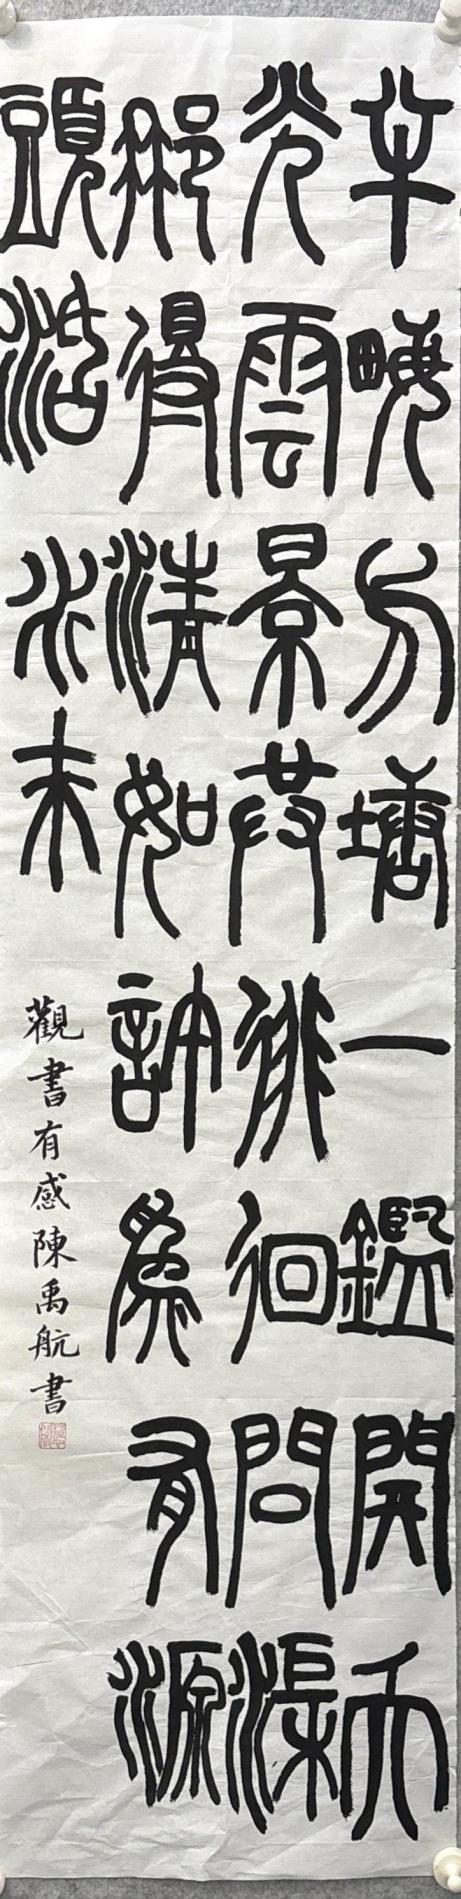 半畝方塘一鑑開天
光雲景共徘徊問渠
那得清如許為有源
頭活水來
觀書有感陳禹航書